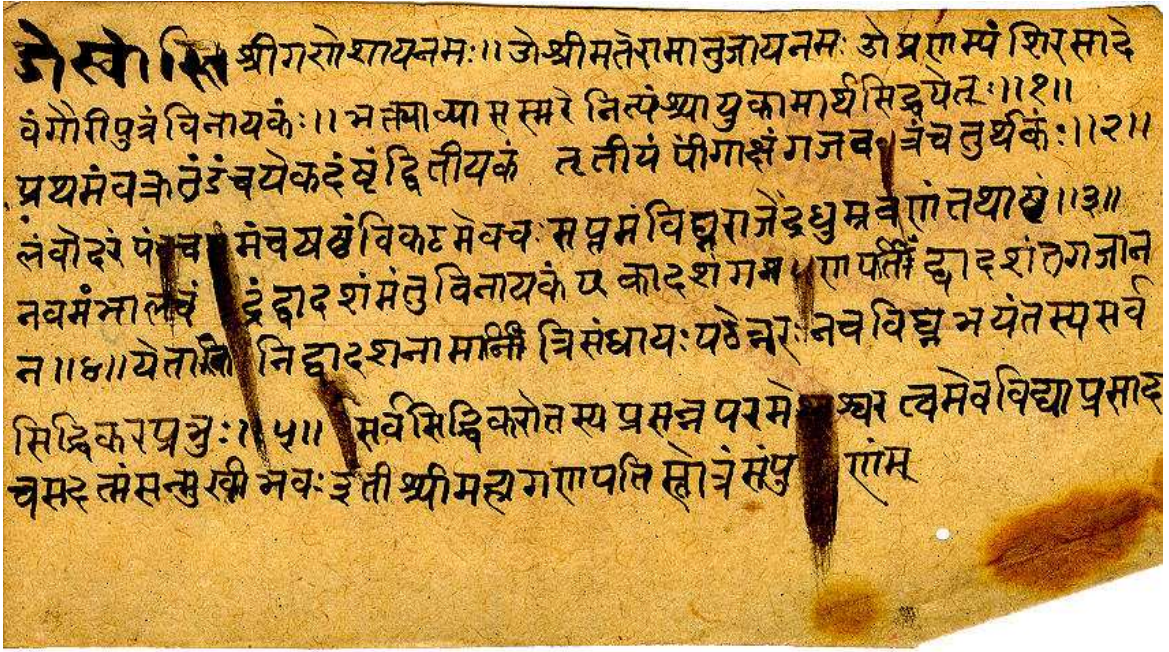 ॐ स्वोस्ति श्रीगणेशायनमः॥ ॐ श्रीमतेरामानुजायनमः ॐ प्रणम्यं शिरसादे
वंगौरीपुत्रं विनायकंः॥ भक्त्याव्यासस्मरे नित्यंश्यायुकामार्थसिद्धयेतः॥१॥
प्रथमंवक्रतुंडंचयेकदंष्ट्रंद्वितीयकं तृतीयं पींगाक्षंगजवक्त्रंचतुर्थकंः॥२॥
लंवोदरं पंचमंचयष्ठंविकटमेवचः सप्तमंविघ्नराजेंद्रधुम्रवर्णंतथाष्टं॥३॥
नवमंभालचंद्रंद्वादशंमंतुविनायकं एकादशंगणपतीं द्वादशंतुगजान
न॥४॥येतानिद्वादशनामानी त्रिसंध्यायः पठेन्नरः नचविघ्नभयंतस्यसर्व
सिद्धिकरप्रभुः॥५॥ सर्वसिद्धिकरोतस्य प्रसन्नपरमेश्वर त्वमेवविद्याप्रसाद
चमद त्मंसन्मुखीभवः इती श्रीमहागणपतिस्तोत्रं संपुर्णंम्